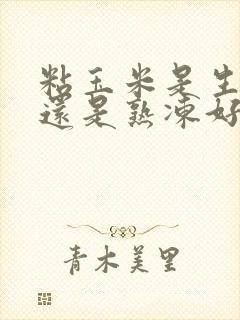 粘玉米是生
還是熟凍好
青木美里